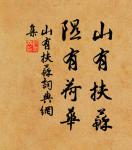 山有扶蘇
隰有荷華
山有扶蘇詞典網
集